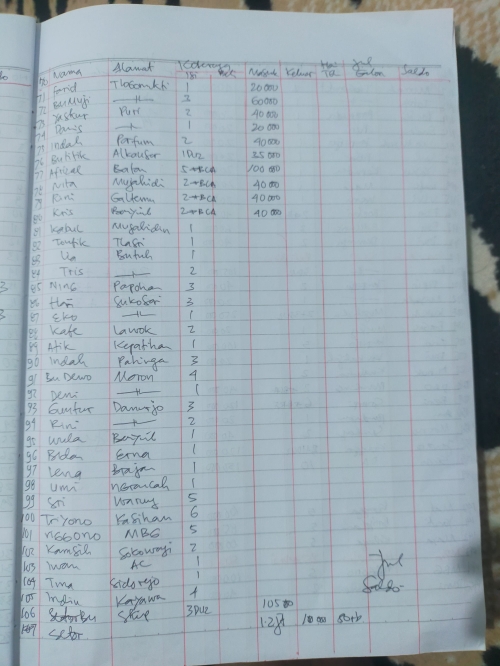 No Nama Alamat Isi Beli Masuk Keluar Hari TR Jul Galon Saldo
Farid 1 20 000
71 Bu Muji 3 60 000
72 Yastur Puri 2 40 000
73 Danis 1 20 000
74 Indah Parfum 2 40 000
75 Butitik Alkautsar 1 PU2 35 000
76 Afrizal Batan 5 BCA 100 000
77 Nita Mujahidi 2 BCA 40 000
Rini 2 BCA 40 000
Kris Banyil 2 BCA 40 000
Kabul Mujahidin 1
Taufik Tlasri 1
Ua Butuh 1
84 Tris 2
85 Ning Papohan 3
86 Hari Sukosari 3
87 Eko 1
88 Kafe Lawok 2
89 Atik Kepatihan 1
90 Indah Paninga 3
91 Bu Dewo Maron 4
92 Deni 1
93 Guntur Danurjo 3
94 Rini 2
95 Wula Banyil 1
96 Bidan Erna 1
97 Leng Brajan 1
98 Umi Ngrancah 1
99 Sri Warung 5
100 Triyono Kasihan 6
101 Nggono MBG 5
102 Kamsih Sokowaji 2
103 Iwan AC 1
104 Tina Sidorejo 1
105 Indri Kayawa 4
106 3 PU2 105 00
107 Setor 1.2 jt 10 000
Jul
Saldo